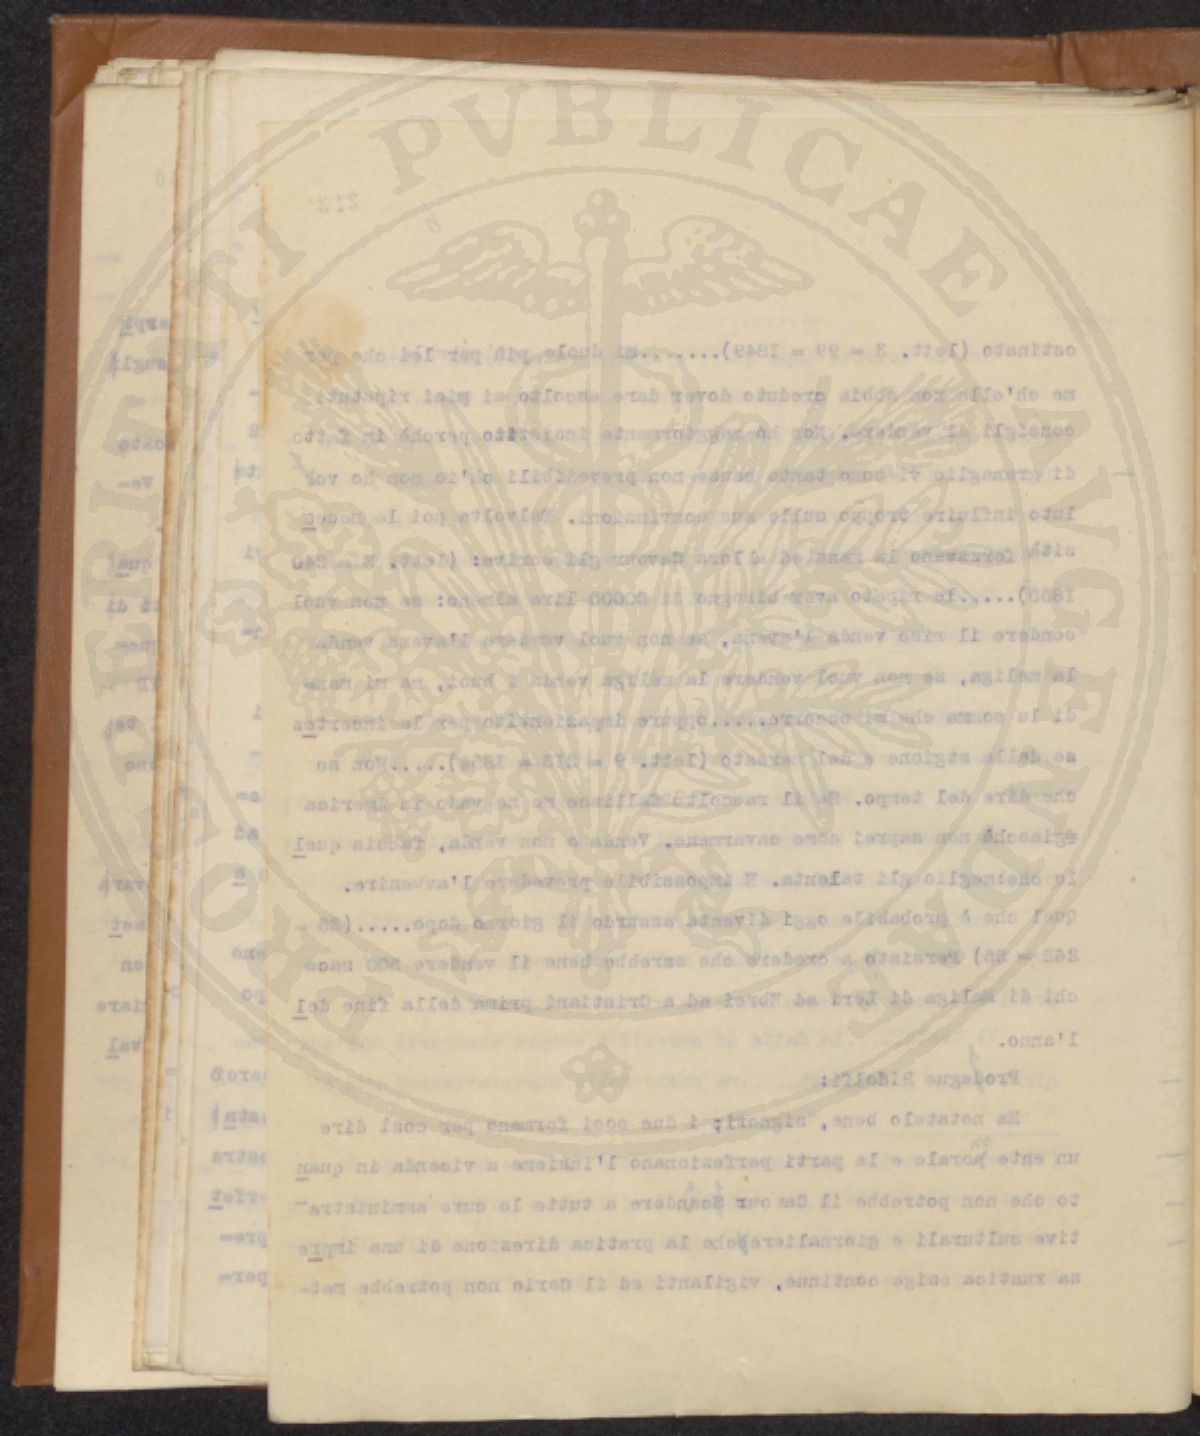 212
ostinato (lett. 3 = 99 = 1849).......mi duole più per lei che per
me ch'ella non abbia creduto dover dare ascolto ai miei ripetuti
consigli di vendere. Non ho maggiormente insistito perchè in fatto
di granaglie vi sono tante cause non prevedibili ch'io non ho vol
luto influire troppo sulle sue convinzioni. Talvolta poi le neces
sità forzavano la mano ed allora Cavour gli scrive: (lett. E = 240
1853).....le ripeto aver bisogno di 20000 lire almeno: se non vuol
vendere il riso venda l'avena, se non vuol vendere l'avena venda
la meliga, se non vuol vendere la meliga venda i buoi, ma mi man=
di la somma che mi occorre.....oppure impazientito per le incertez
ze della stagione e del mercato (lett. 9 = 213 = 1854).....Non so
che dire del tempo. Se il raccolto fallisce me ne vado in America
giacchè non saprei come cavarmene. Venda o non venda, faccia quel
lo che meglio gli talenta. E impossibile prevedere l'avvenire.
Quel che è probabile oggi diventa assurdo il giorno dopo.....(25 =
242 = 55) Persisto a credere che sarebbe bene il vendere 500 sac=
chi di Meliga di Leri ad Ebrei ad a Cristiani prima della fine del
l'anno.
Prosegue Ridolfi:
Ma notatelo bene, signori; i due soci formano per così dire
un ente morale e le parti perfezionano l'insieme a vicenda in quan
to che non potrebbe il Cavour scendere a tutte le cure amministra=
tive culturali e giornaliere che la pratica direzione di una impre
sa rustica esige continue, vigilanti ed il Corio non potrebbe met=
ROSPERITATI PVBLICAE AVGENDAE